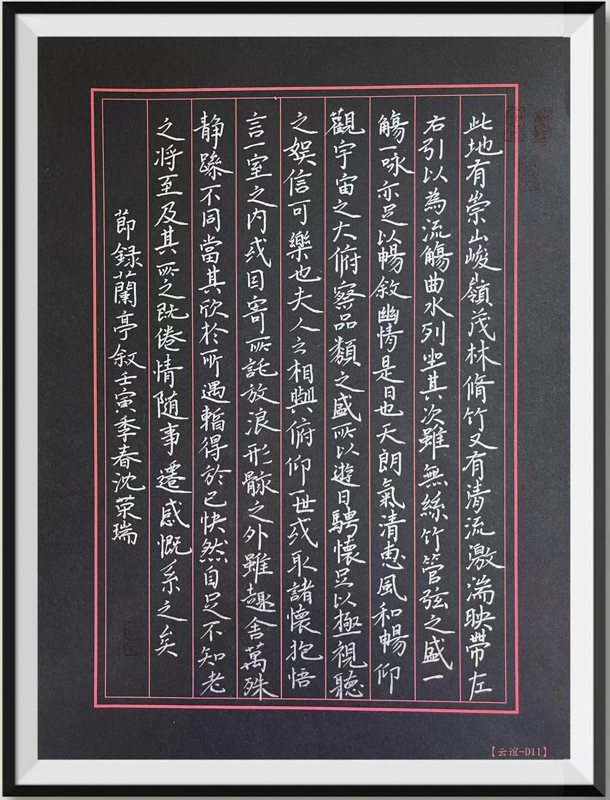 此地有崇山峻嶺茂林脩竹又有清流激湍映帶左
右引以為流觴曲水列坐其次雖無絲竹管弦之盛一
觴一咏亦足以暢敘幽情是日也天朗氣清惠風和暢仰
觀宇宙之大俯察品類之盛所以遊目騁懷足以極視聽
之娛信可樂也夫人之相與俯仰一世或取諸懷抱悟
言一室之内或因寄所託放浪形骸之外雖趣舍萬殊
静躁不同當其欣於所遇暫得於己快然自足不知老
之将至及其所之既倦情随事遷感慨系之矣
節録蘭亭叙壬寅季春沈荣瑞
【云谊-D11】